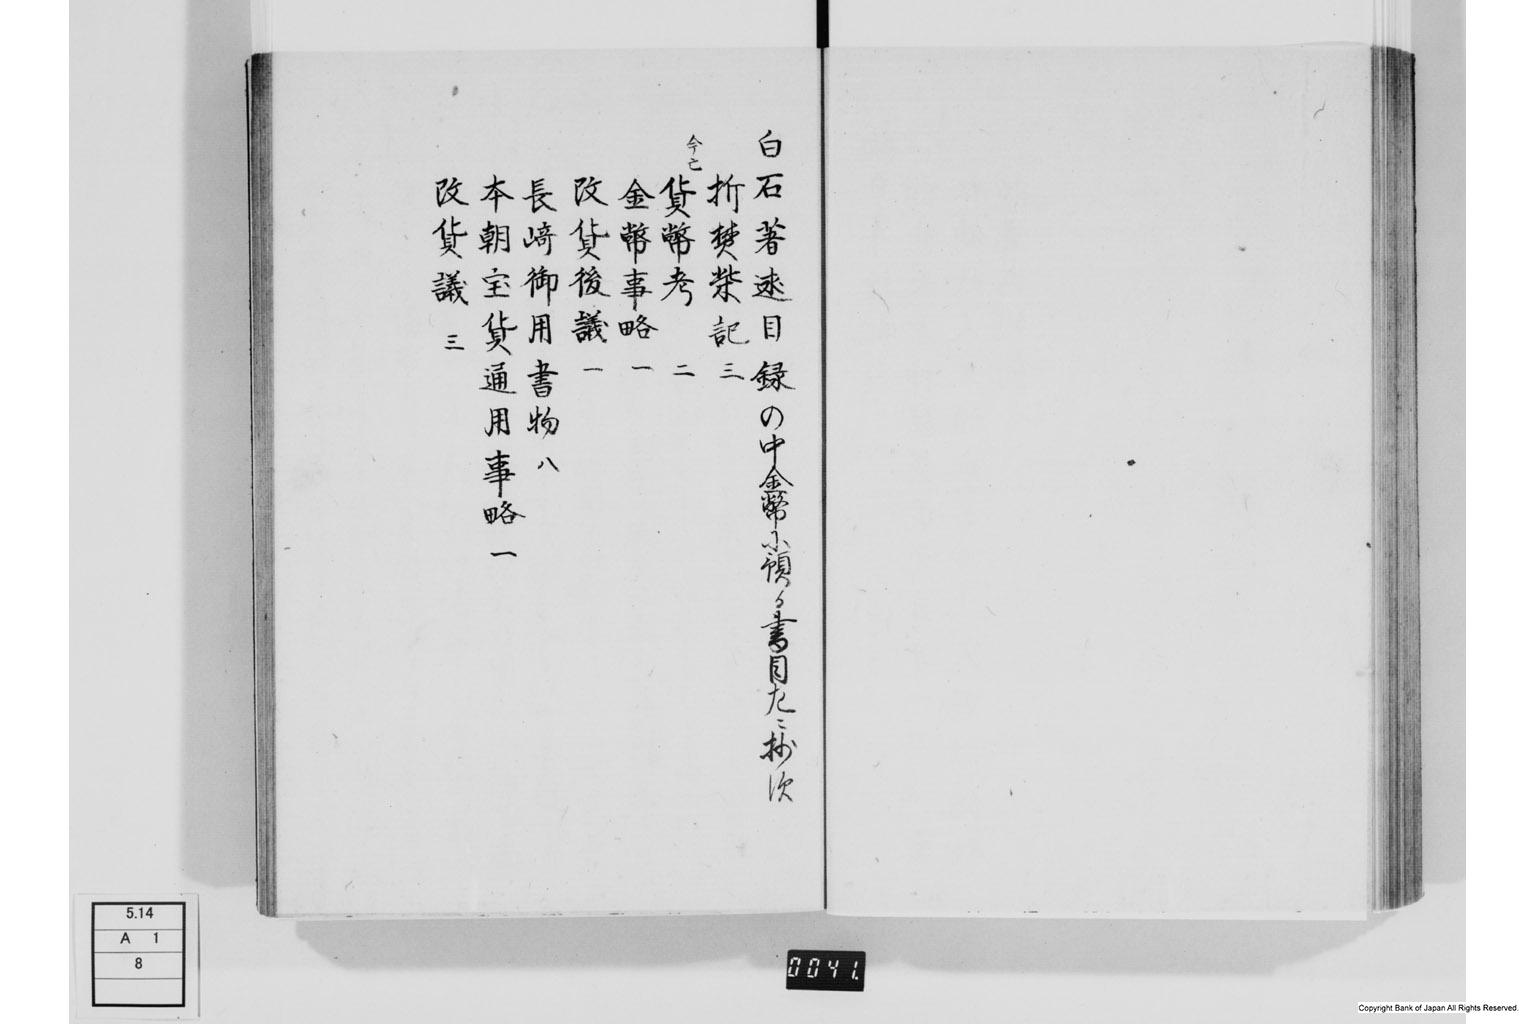 白石著述目録の中金幣に預る書目左ニ抄次
折焚柴記 三
今亡
貨幣考 二
金幣事略 一
改貨後議 一
長崎御用書物 八
本朝宝貨通用事略 一
改貨議 三
5.14
A 1
8
0041.
Copyright Bank of Japan All Rights Reserved.